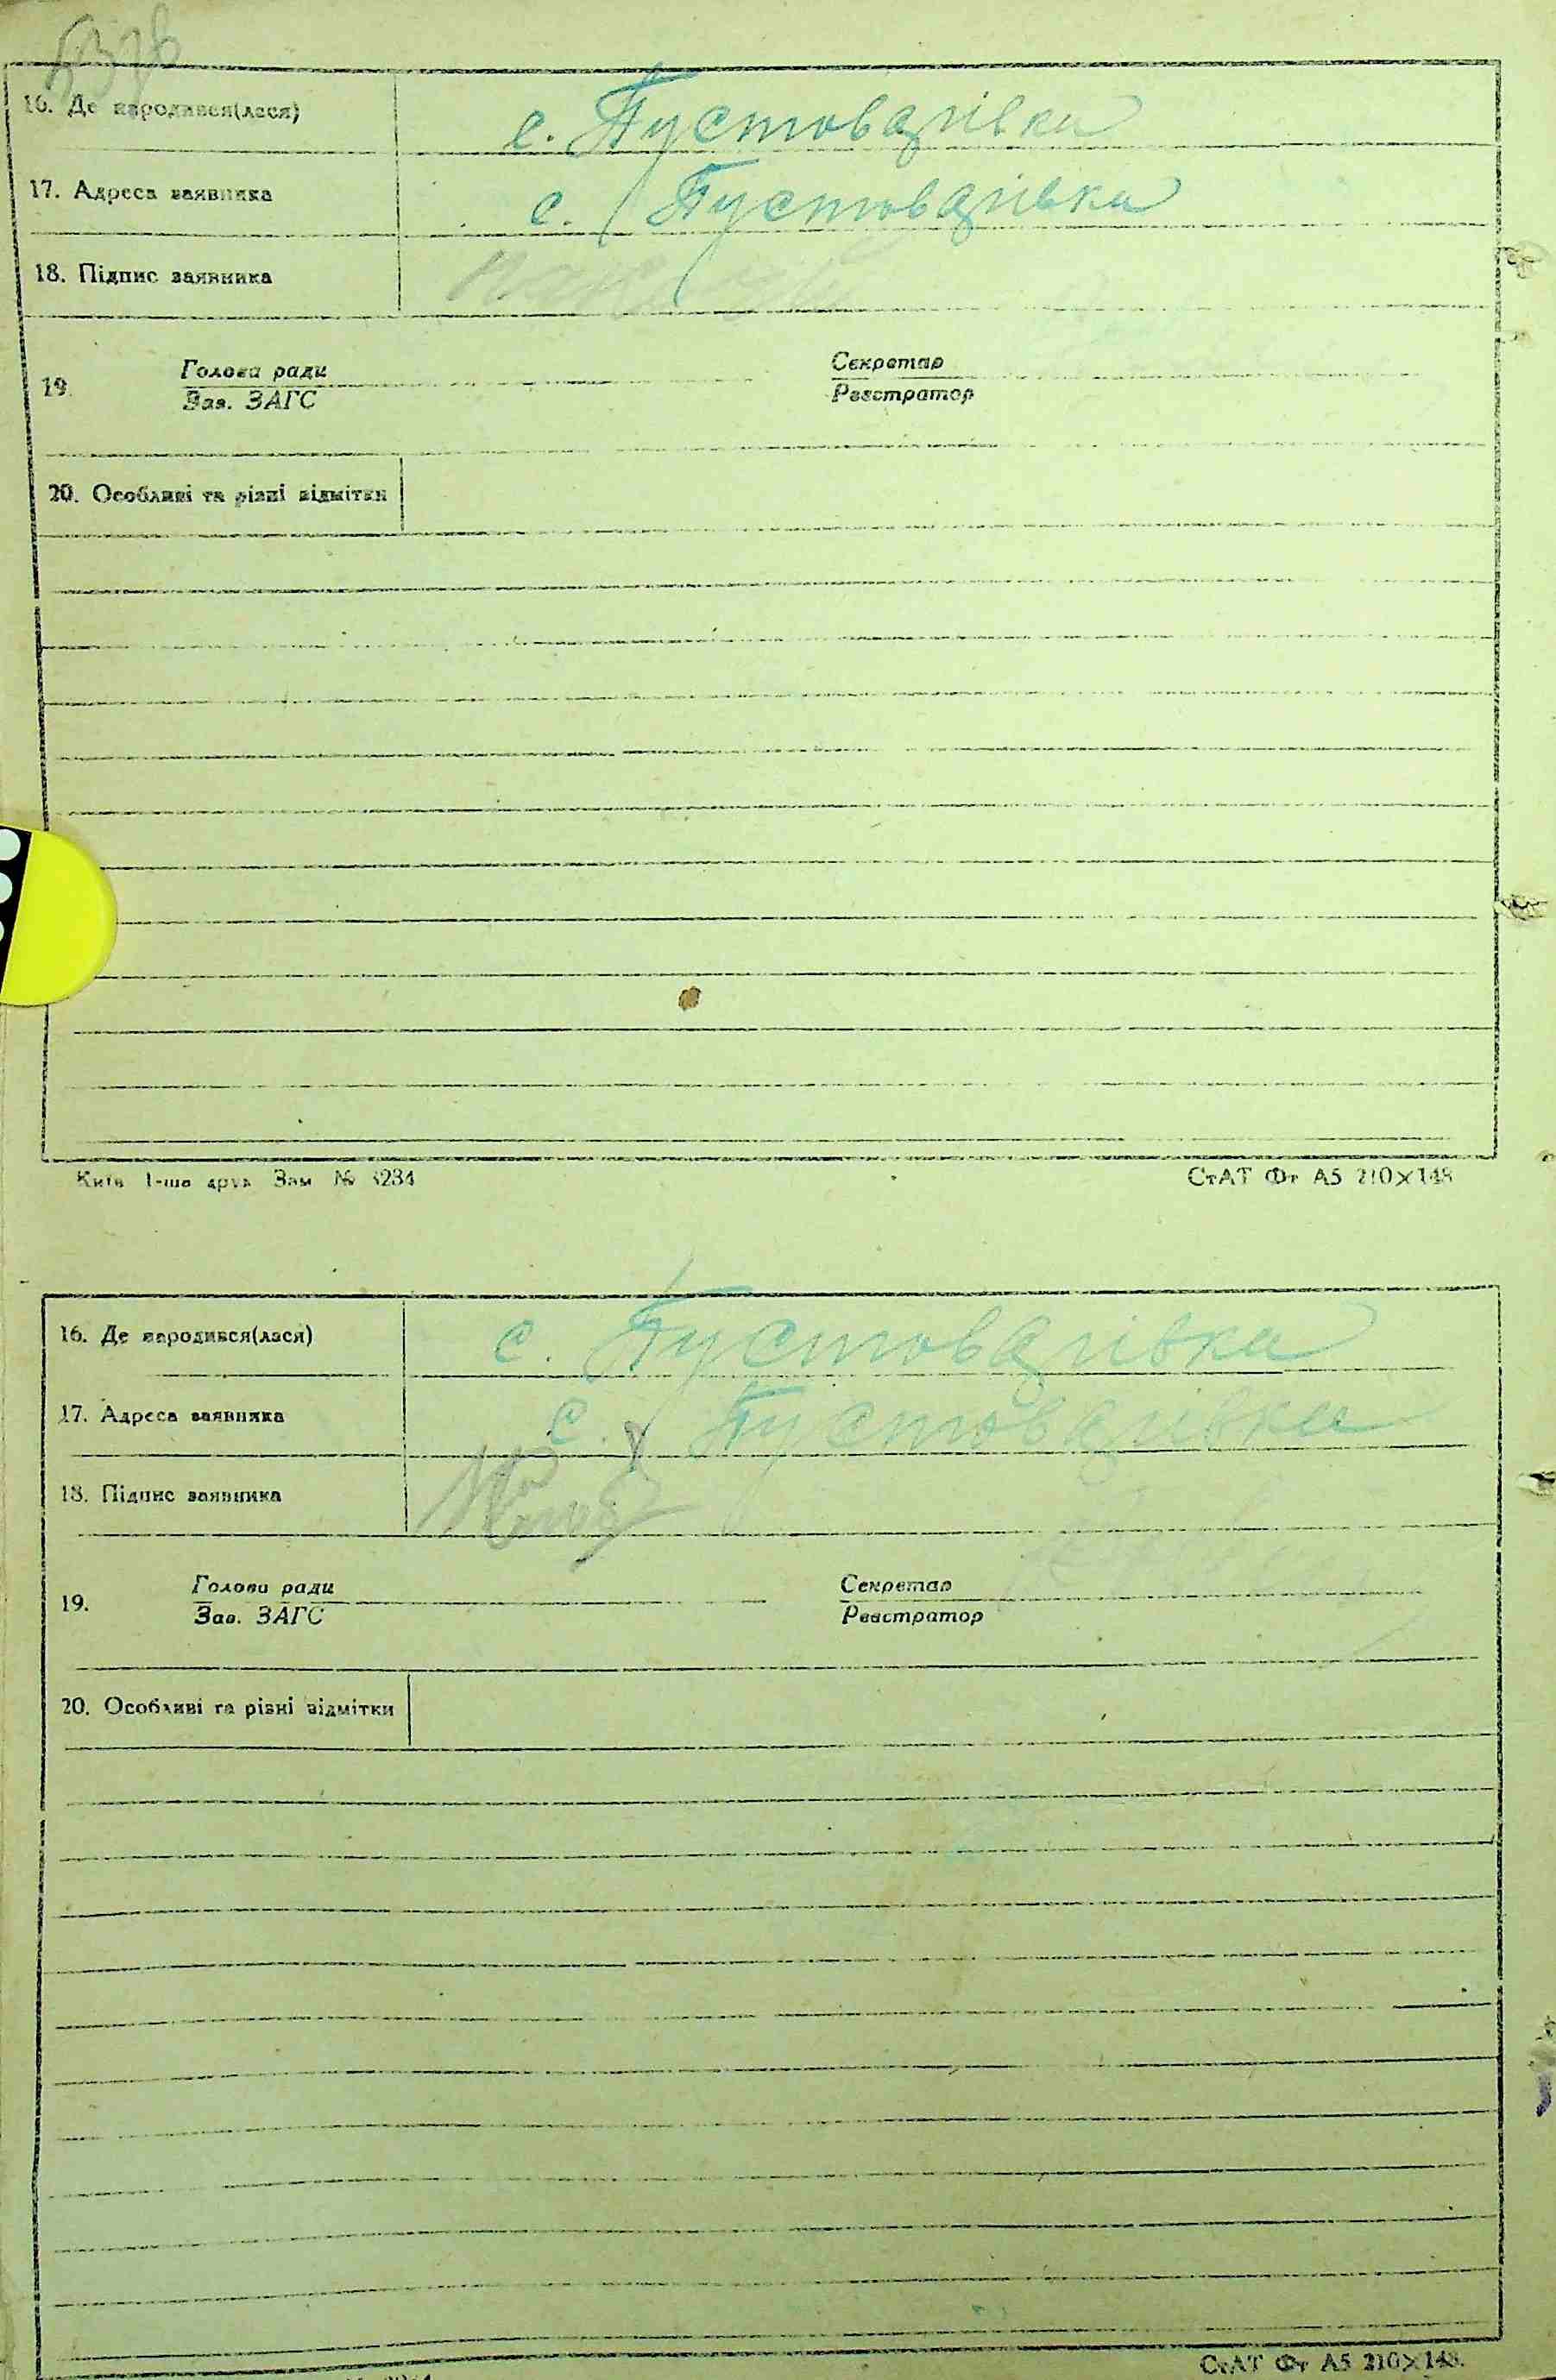 16. Де народився(лася) с. Пустоварівка
17. Адреса заявника с. Пустоварівка
18. Підпис заявника
19. Голова ради Секретар
Зав. ЗАГС Реєстратор
20. Особливі та різні відмітки
Київ 1-ша друк Зам №
СтАТ Фт А5 210×148
16. Де народився(лася) с. Пустоварівка
17. Адреса заявника с. Пустоварівка
18. Підпис заявника
19. Голова ради Секретар
Зав. ЗАГС Реєстратор
20. Особливі та різні відмітки
СтАТ Фт А5 210×148.